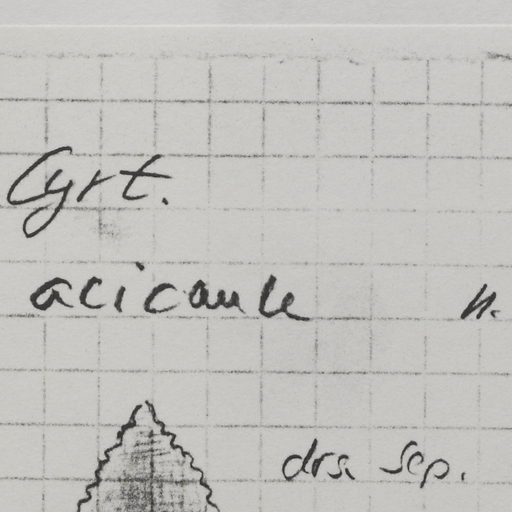 Cyrt.
acicaule n.
drs. sep.